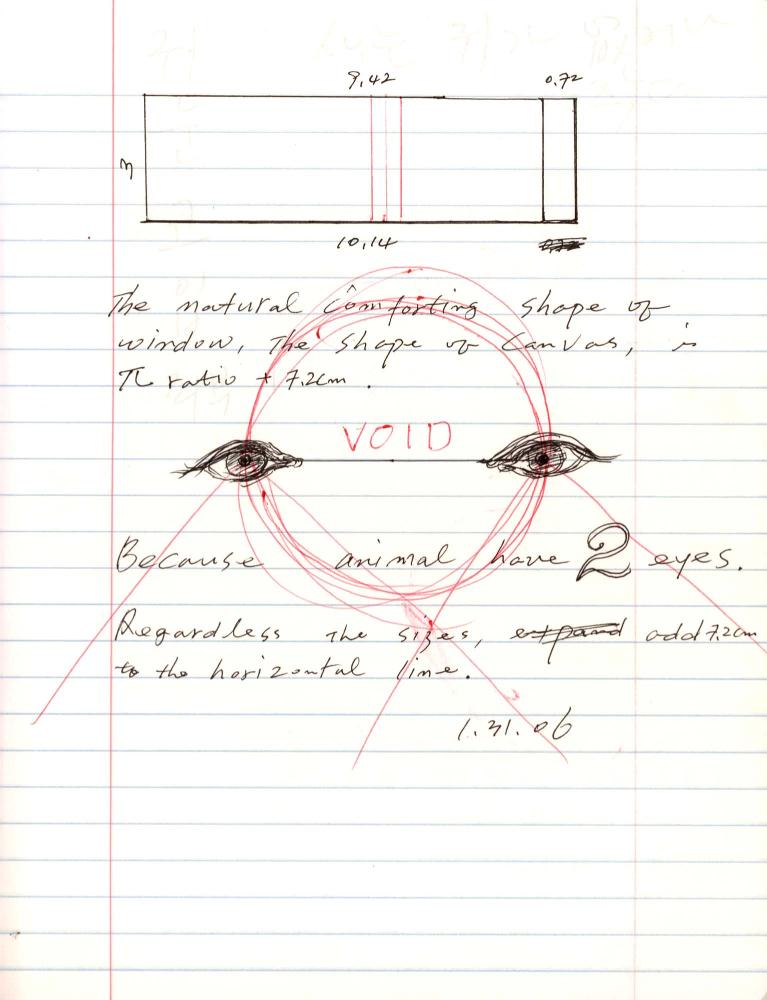 9,42 0.72
3
10,14
The natural comforting shape of
window, The shape of Canvas, is
π ratio + 7.2cm.
VOID
Because animal have 2 eyes.
Regardless the sizes, expand add 7.2cm
to the horizontal line.
1.31.06